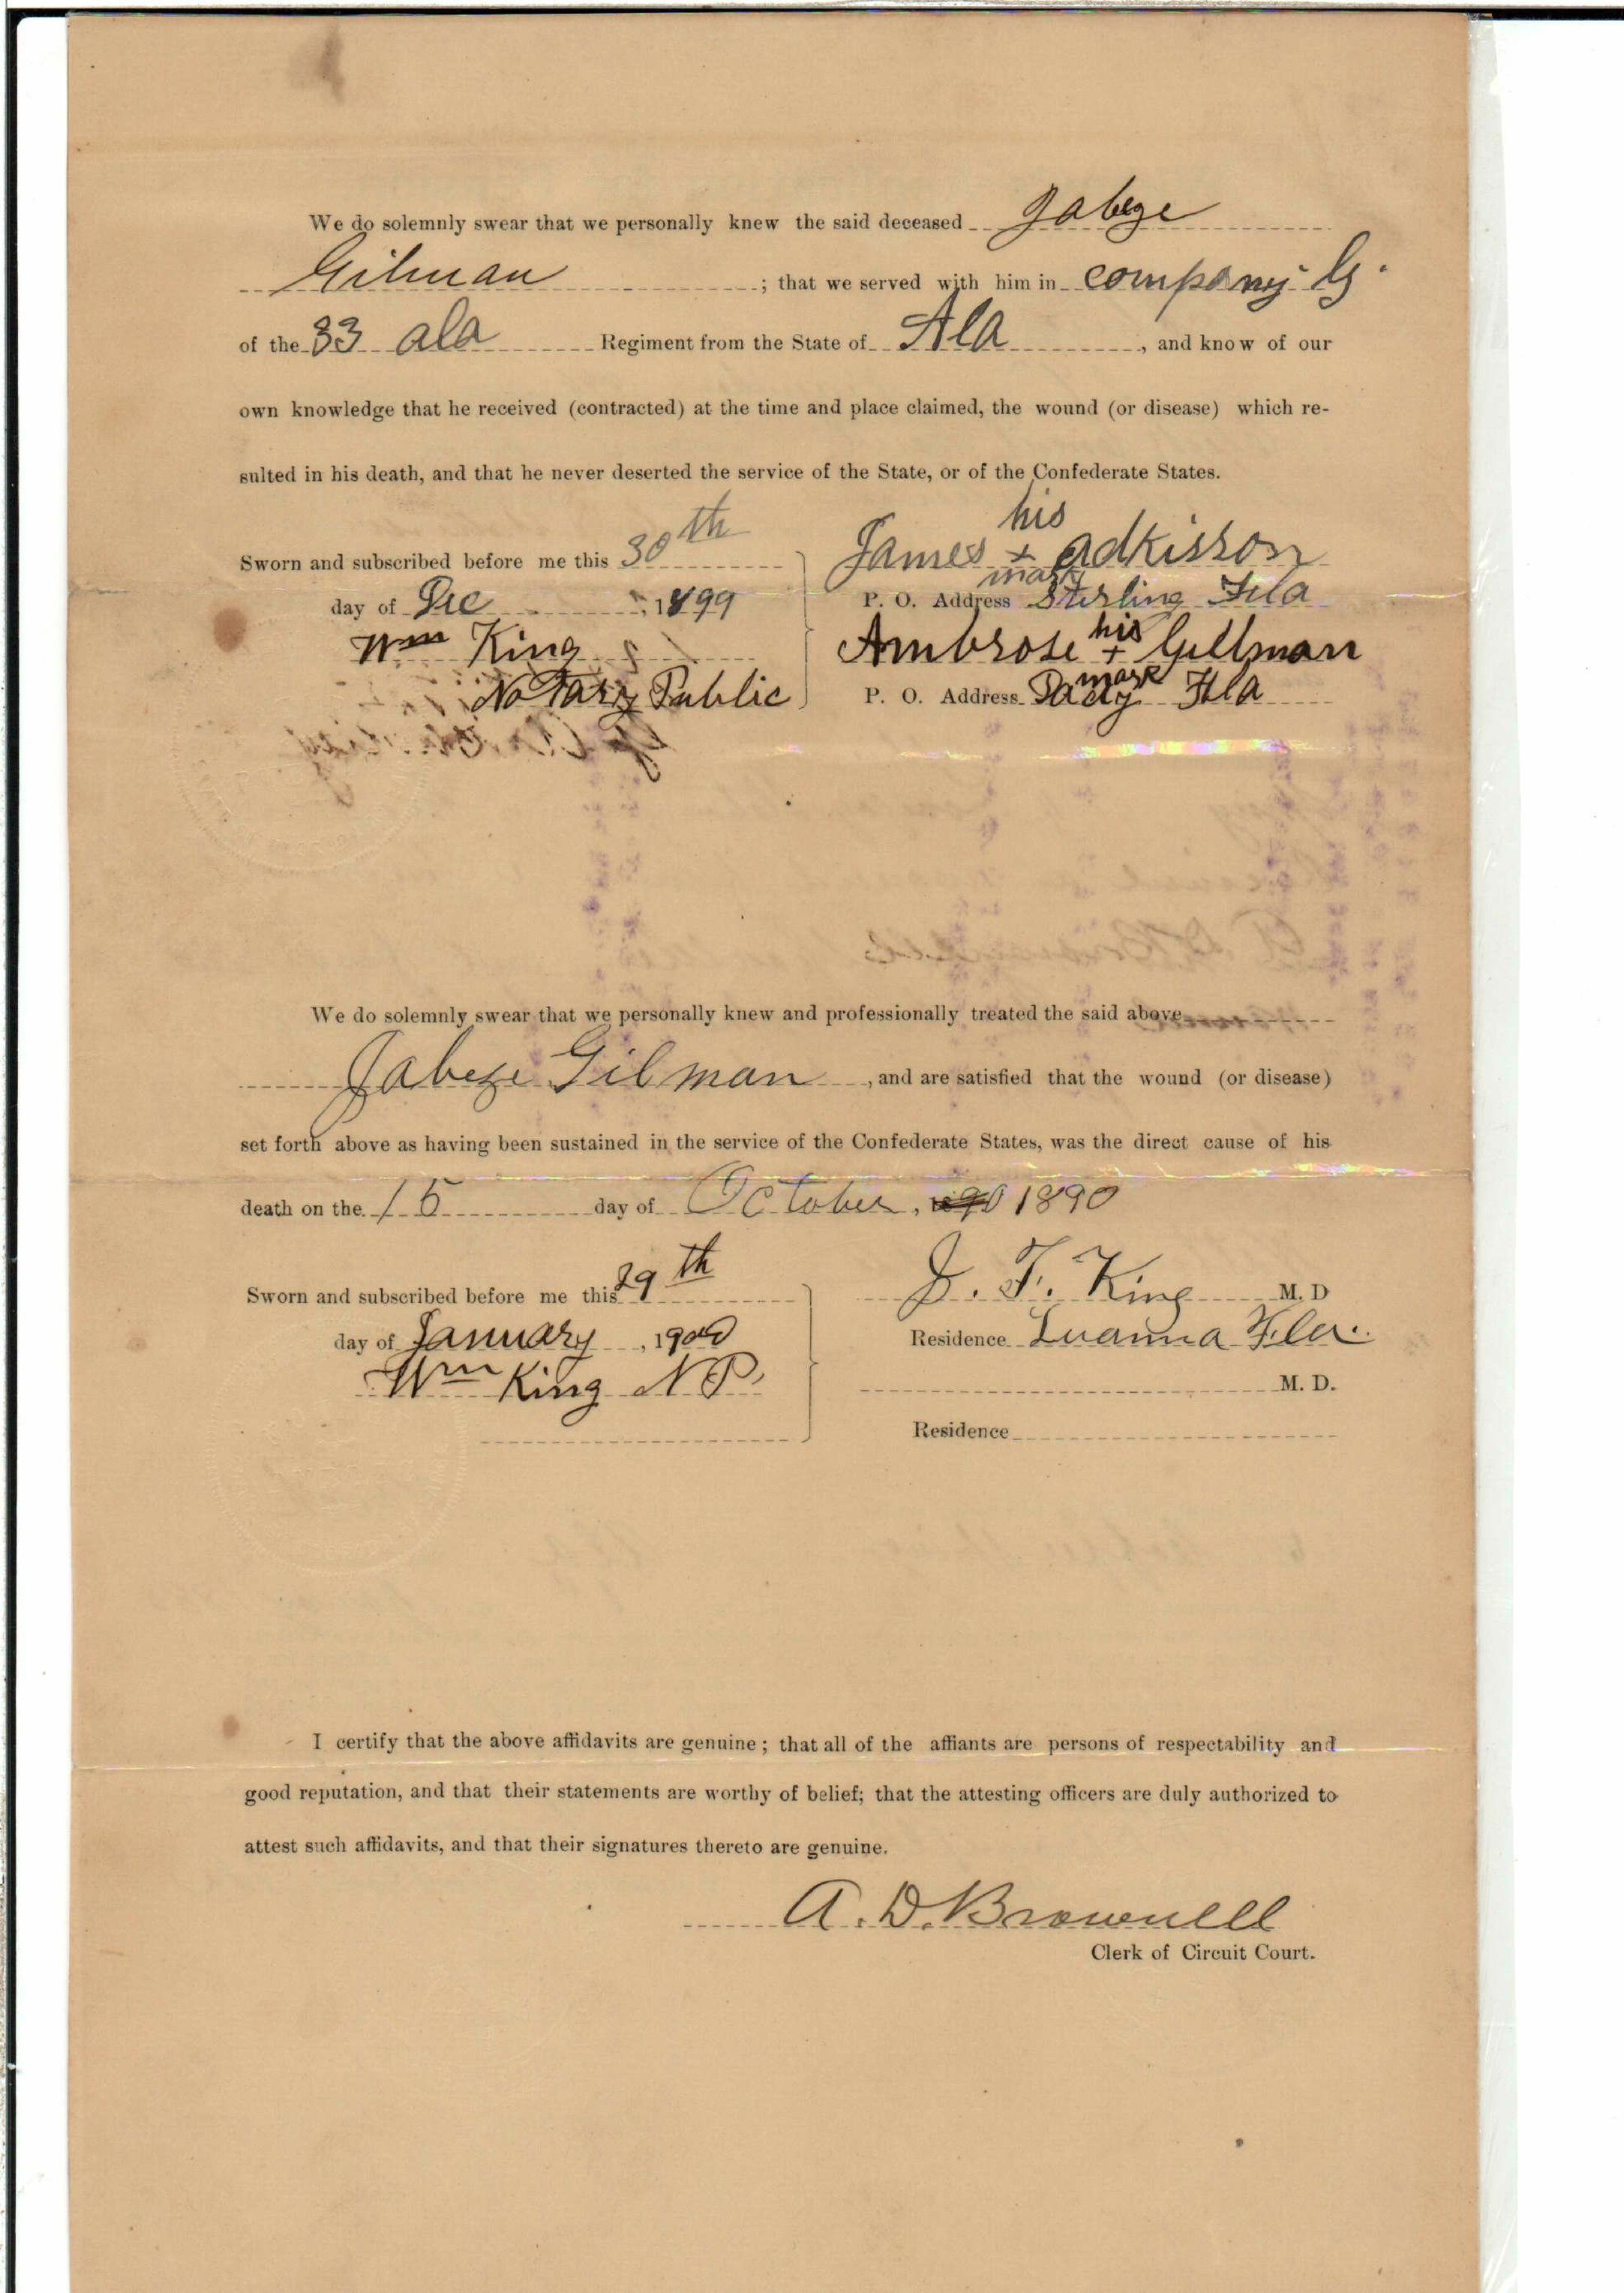 We do solemnly swear that we personally knew the said deceased Jabeze
Gilman ; that we served with him in company G.
of the 33 ala Regiment from the State of Ala , and know of our
own knowledge that he received (contracted) at the time and place claimed, the wound (or disease) which re-
sulted in his death, and that he never deserted the service of the State, or of the Confederate States.
his
Sworn and subscribed before me this 30th James + adkisson
mark
day of Dec , 1899 P. O. Address Sterling Fla
his
Wm King Ambrose + Gillman
mark
Notary Public P. O. Address Pady Fla
We do solemnly swear that we personally knew and professionally treated the said above
Jabeze Gilman , and are satisfied that the wound (or disease)
set forth above as having been sustained in the service of the Confederate States, was the direct cause of his
death on the 15 day of October , 1890
Sworn and subscribed before me this 29th J. F. King M. D
day of January , 1900 Residence Luanna Fla.
Wm King N P. M. D.
Residence
I certify that the above affidavits are genuine; that all of the affiants are persons of respectability and
good reputation, and that their statements are worthy of belief; that the attesting officers are duly authorized to
attest such affidavits, and that their signatures thereto are genuine.
A. D. Brownell
Clerk of Circuit Court.